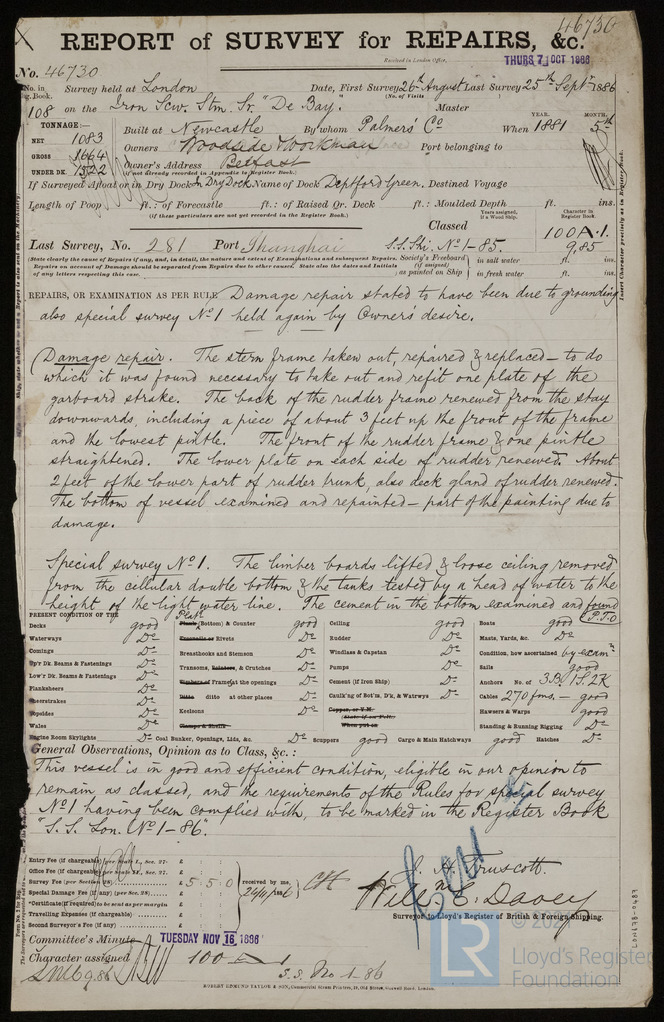 46730
REPORT of SURVEY for REPAIRS, &c.
Received in London Office,
THURS 7 OCT 1886
No. 46730
No. in Survey held at London Date, First Survey 26th August Last Survey 25th Septr 1886
Reg. Book. (No. of Visits )
108 on the Iron Scw. Stm. Sr. "De Bay." Master
TONNAGE:— YEAR. MONTH.
NET 1083 Built at Newcastle By whom Palmers' Co When 1881 5th
GROSS 1664 Owners Woodside Workman Port belonging to
UNDER DK. 1522 Owner's Address Belfast
(if not already recorded in Appendix to Register Book.)
If Surveyed Afloat or in Dry Dock In Dry Dock Name of Dock Deptford Green. Destined Voyage
Length of Poop ft.: of Forecastle ft.: of Raised Qr. Deck ft.: Moulded Depth ft. ins.
(if these particulars are not yet recorded in the Register Book.)
Years assigned, if a Wood Ship. Character in Register Book.
Classed 100 A.1.
Last Survey, No. 281 Port Shanghai S.S. Shi. No 1-85. 9,85
(State clearly the cause of Repairs if any, and, in detail, the nature and extent of Examinations and subsequent Repairs. Society's Freeboard in salt water ft. ins.
Repairs on account of Damage should be separated from Repairs due to other causes. State also the dates and Initials (if assigned)
of any letters respecting this case.) as painted on Ship in fresh water ft. ins.
REPAIRS, OR EXAMINATION AS PER RULE Damage repair stated to have been due to grounding
also special survey No 1 held again by Owner's desire.
Damage repair. The stern frame taken out, repaired & replaced – to do
which it was found necessary to take out and refit one plate of the
garboard strake. The back of the rudder frame renewed from the stay
downwards, including a piece of about 3 feet up the front of the frame
and the lowest pintle. The front of the rudder frame & one pintle
straightened. The lower plate on each side of rudder renewed. About
2 feet of the lower part of rudder trunk, also deck gland of rudder renewed.
The bottom of vessel examined and repainted – part of the painting due to
damage.
Special survey No 1. The limber boards lifted & loose ceiling removed
from the cellular double bottom & the tanks tested by a head of water to the
height of the light water line. The cement in the bottom examined and found
P.T.O
PRESENT CONDITION OF THE
Decks good Plat. Plank (Bottom) & Counter good Ceiling good Boats good
Waterways Do Treenails or Rivets Do Rudder Do Masts, Yards, &c. Do
Comings Do Breasthooks and Stemson Windlass & Capstan Do Condition, how ascertained by exam
Up'r Dk. Beams & Fastenings Do Transoms, Pointers, & Crutches Do Pumps Do Sails good
Low'r Dk. Beams & Fastenings Do Timbers of Frame at the openings Do Cement (if Iron Ship) Do Anchors No. of 3B. 1S. 2K
Planksheers Do Ditto ditto at other places Do Caulk'ng of Bot'm, D'k, & Watrwys Do Cables 270 fms. – good
Sheerstrakes Do Keelsons Do Copper, or Y.M. Hawsers & Warps good
Topsides Do (State if on Felt.)
Wales Do Clamps & Shelfs When put on Standing & Running Rigging Do
Engine Room Skylights Do Coal Bunker, Openings, Lids, &c. Do Scuppers good Cargo & Main Hatchways good Hatches Do
General Observations, Opinion as to Class, &c.:
This vessel is in good and efficient condition, eligible in our opinion to
remain as classed, and the requirements of the Rules for special survey
No 1 having been complied with, to be marked in the Register Book
"S.S. Lon. No 1-86".
Entry Fee (if chargeable) per Scale I., Sec. 27. £ : :
Office Fee (if chargeable) Sec. 27. £ : :
Survey Fee (per Section 28) £ 5 : 5 : 0 received by me,
Special Damage Fee (if any) (per Sec. 28) £ : :
*Certificate (if required) to be sent as per margin £ : :
Travelling Expenses (if chargeable) £ : :
Second Surveyor's Fee (if any) £ : :
Truscott.
Will. E. Davey
Surveyor to Lloyd's Register of British & Foreign Shipping.
Committee's Minute TUESDAY NOV 16 1886
Character assigned 100 A 1
LMC 9.86 S.S. No 1-86
ROBERT EDMUND TAYLOR & SON, Commercial Steam Printers, 19, Old Street, Goswell Road, London.
LR
Lloyd's Register
Foundation